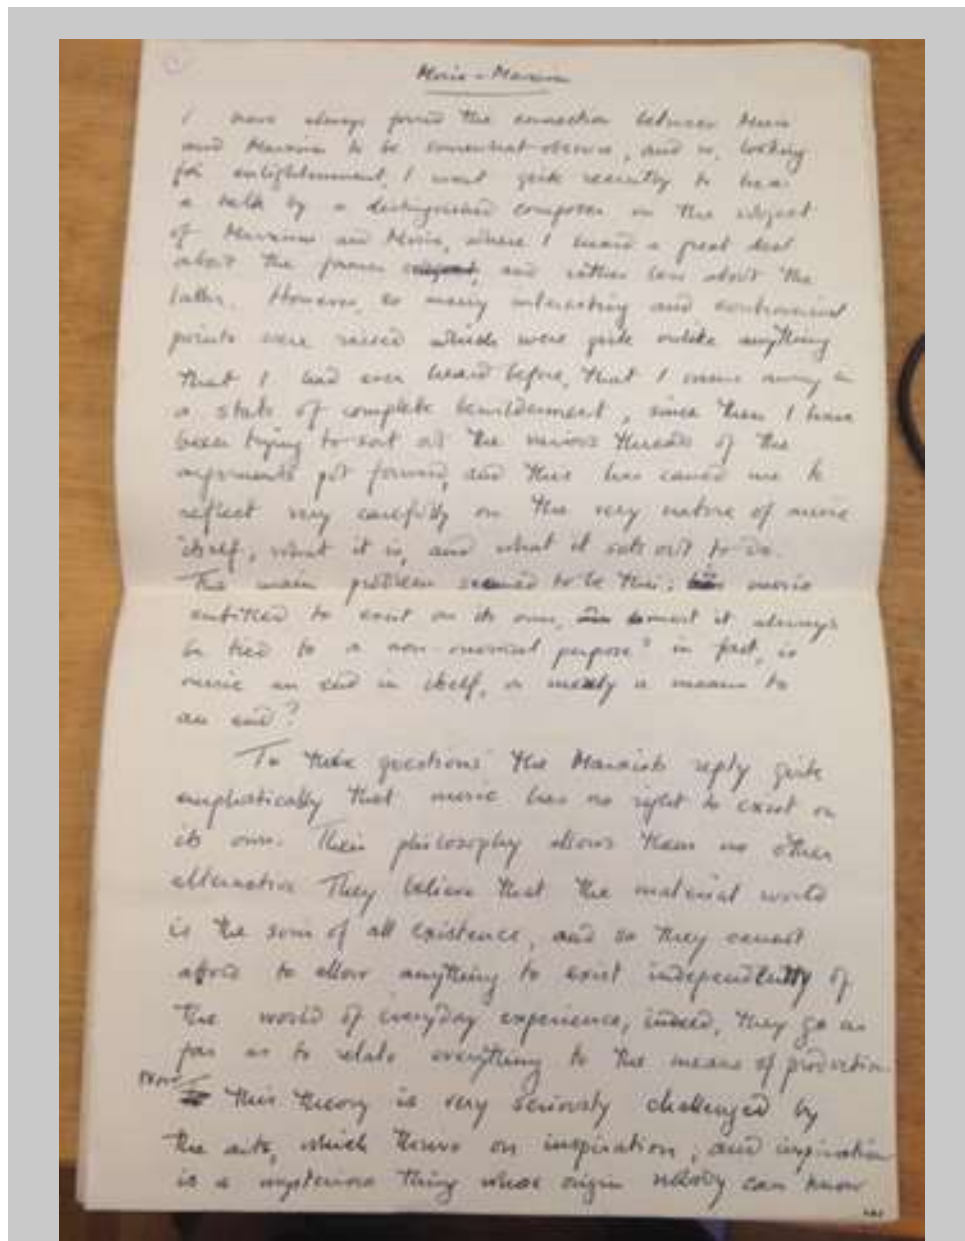 Music - Marxism
I have always found the connection between Music
and Marxism to be somewhat obscure, and so, looking
for enlightenment, I went quite recently to hear
a talk by a distinguished composer on the subject
of Marxism and Music, where I heard a great deal
about the former, and rather less about the
latter. However, so many interesting and controversial
points were raised which were quite unlike anything
that I had ever heard before, that I came away in
a state of complete bewilderment, since then I have
been trying to sort out the various threads of the
arguments put forward, and this has caused me to
reflect very carefully on the very nature of music
itself, what it is, and what it sets out to do.
The main problem seemed to be this: music
entitled to exist on its own, must it always
be tied to a non-musical purpose? in fact, is
music an end in itself, or merely a means to
an end?
To these questions the Marxists reply quite
emphatically that music has no right to exist on
its own. Their philosophy allows them no other
alternative They believe that the material world
is the sum of all existence, and so they cannot
afford to allow anything to exist independently of
the world of everyday experience, indeed, they go as
far as to relate everything to the means of production
Now this theory is very seriously challenged by
the arts, which thrive on inspiration; and inspiration
is a mysterious thing whose origin nobody can know